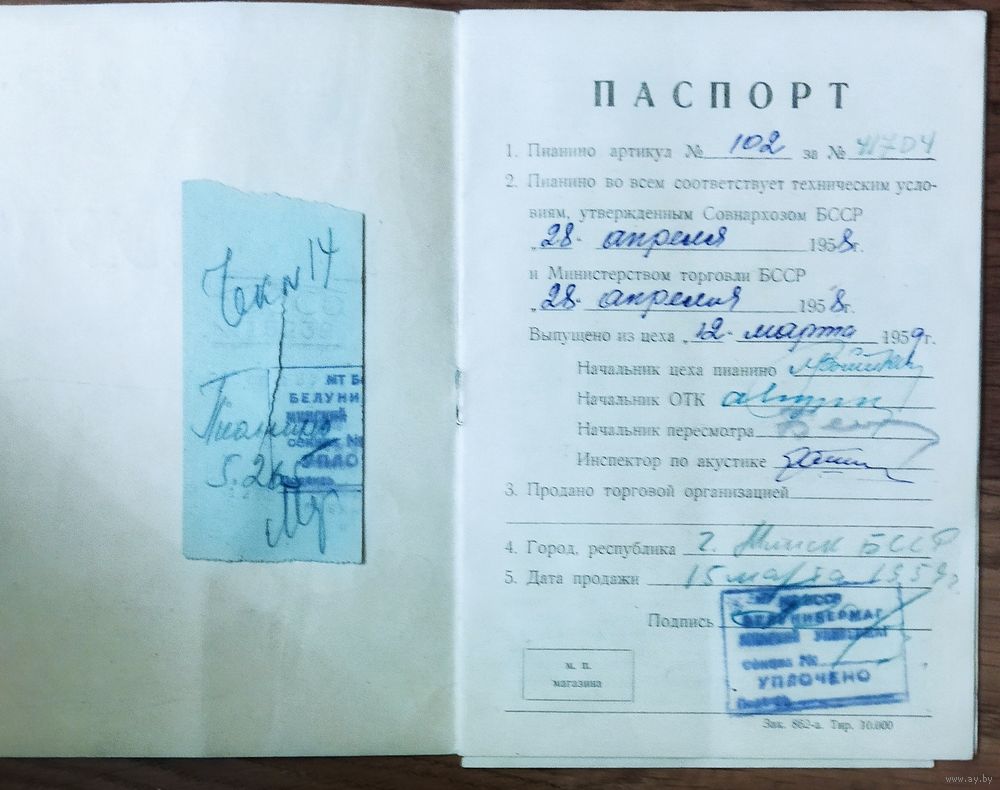 Чек № 14
Пианино
5.265
МТ Б
БЕЛУНИ
УПЛО
ПАСПОРТ
1. Пианино артикул № 102 за № 41704
2. Пианино во всем соответствует техническим усло-
виям, утвержденным Совнархозом БССР
„28 апреля 1958г.
и Министерством торговли БССР
„28 апреля 1958г.
Выпущено из цеха „12 марта 1959г.
Начальник цеха пианино
Начальник ОТК
Начальник пересмотра
Инспектор по акустике
3. Продано торговой организацией
4. Город, республика г. Минск БССР
5. Дата продажи 15 марта 1959г
Подпись
БЕЛУНИВЕРМАГ
секция №
УПЛОЧЕНО
м. п.
магазина
Зак. 862-а. Тир. 10.000
www.ay.by